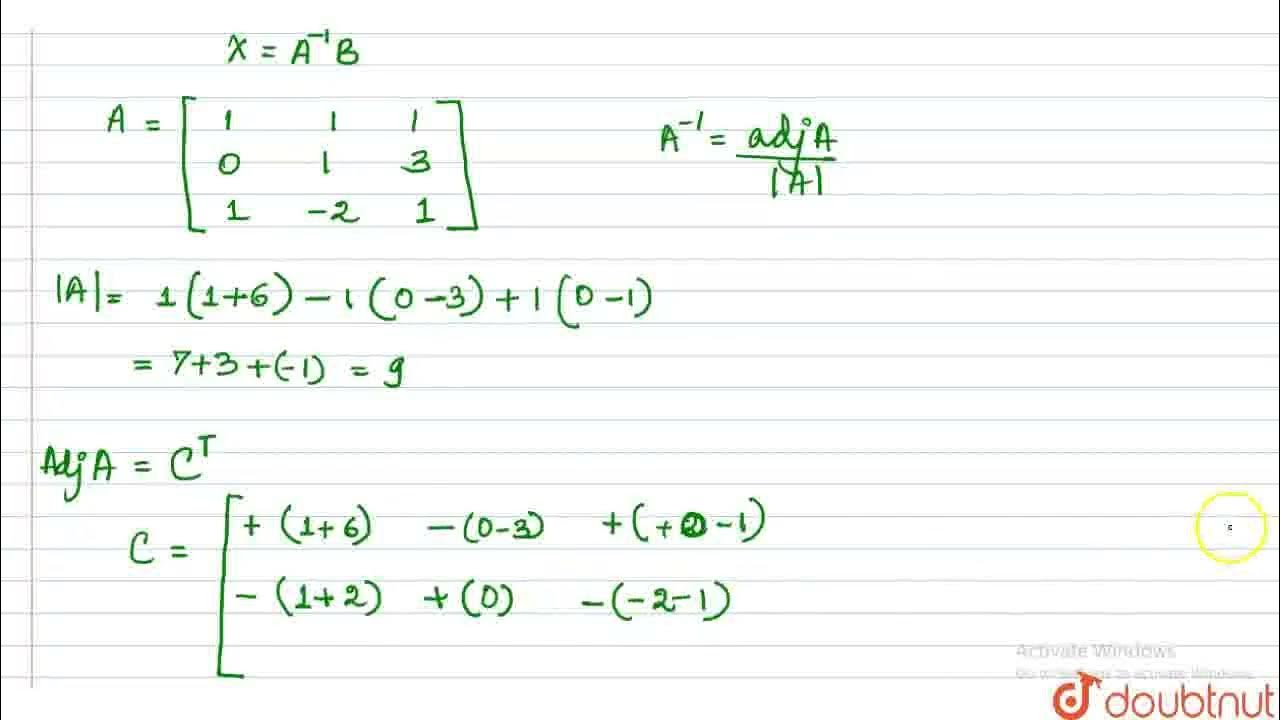 X = A⁻¹B
A = [ 1 1 1
0 1 3
1 -2 1 ]
A⁻¹ = adjA / |A|
|A| = 1(1+6) - 1(0-3) + 1(0-1)
= 7+3+(-1) = 9
AdjA = Cᵀ
C = [ +(1+6) -(0-3) +(+0-1)
-(1+2) +(0) -(-2-1)
Activate Windows
Go to Settings to activate Windows.
doubtnut